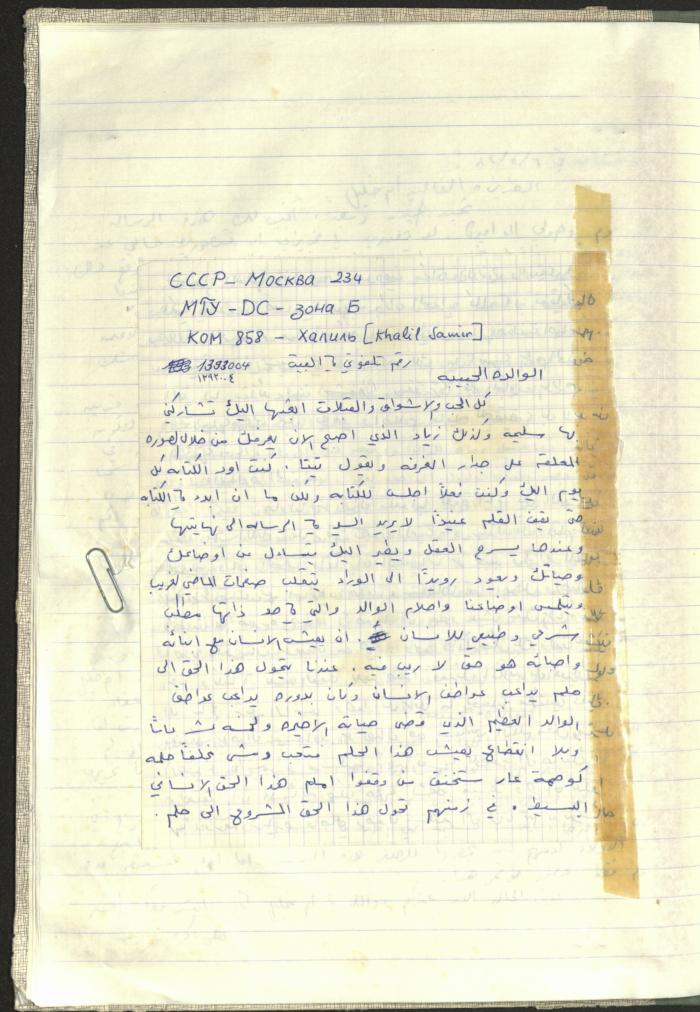 СССР - Москва 234
МГУ - DC - зона Б
КОМ 858 - Халиль [Khalil Samir]
1393004 رقم تلفوني في الغيبة
١٣٩٣٠٠٤
الوالده الحبيبه
كل الحب والاشواق والقبلات ابعثها اليك تشاركني
بها سليمه وكذلك زياد الذي اصبح الان يعرفك من خلال الصوره
المعلقة على جدار الغرفه ويقول تيتا . كنت اود الكتابه كل
يوم اليك وكنت فعلاً اجلس للكتابه ولكن ما ان ابدء في الكتابه
حتى يقف القلم عنيداً لا يريد السير في الرساله الى نهايتها
وعندها يسرح العقل ويطير اليك يتساءل عن اوضاعك
وحياتك ويعود رويداً الى الوراء يتقلب صفحات الماضي القريب
ويتلمس اوضاعنا واحلام الوالد والتي في حد ذاتها مطلب
شرعي وطبيعي للانسان . ان يعيش الانسان مع ابنائه
واحبائه هو حق لا ريب فيه . عندنا يتحول هذا الحق الى
حلم يداعب عواطف الانسان وكان بدوره يداعب عواطف
الوالد العظيم الذي قضى حياته الاخيره ولخمسة عشر عاماً
وبلا انقطاع يعيش هذا الحلم فتعب ومشى مخلفاً حلمه
كوصمة عار ستخنق من وقفوا امام هذا الحق الانساني
البسيط . في زمنهم تحول هذا الحق المشروع الى حلم .